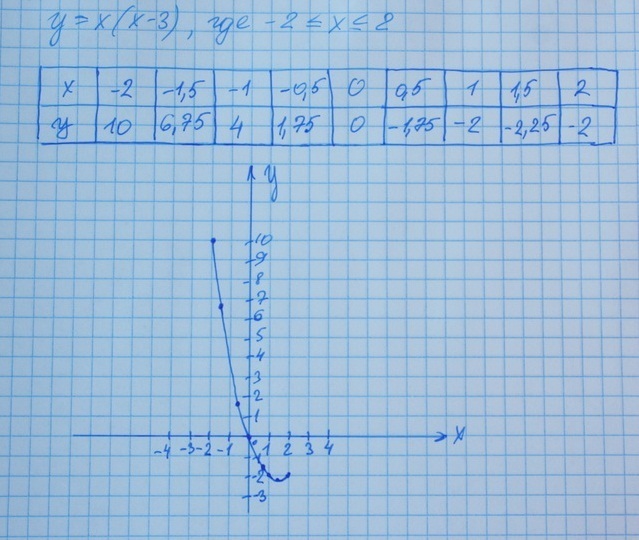 y = x(x-3), где -2 ≤ x ≤ 2
x -2 -1,5 -1 -0,5 0 0,5 1 1,5 2
y 10 6,75 4 1,75 0 -1,75 -2 -2,25 -2
y
10
9
8
7
6
5
4
3
2
1
x
-4 -3 -2 -1 0 1 2 3 4
-1
-2
-3